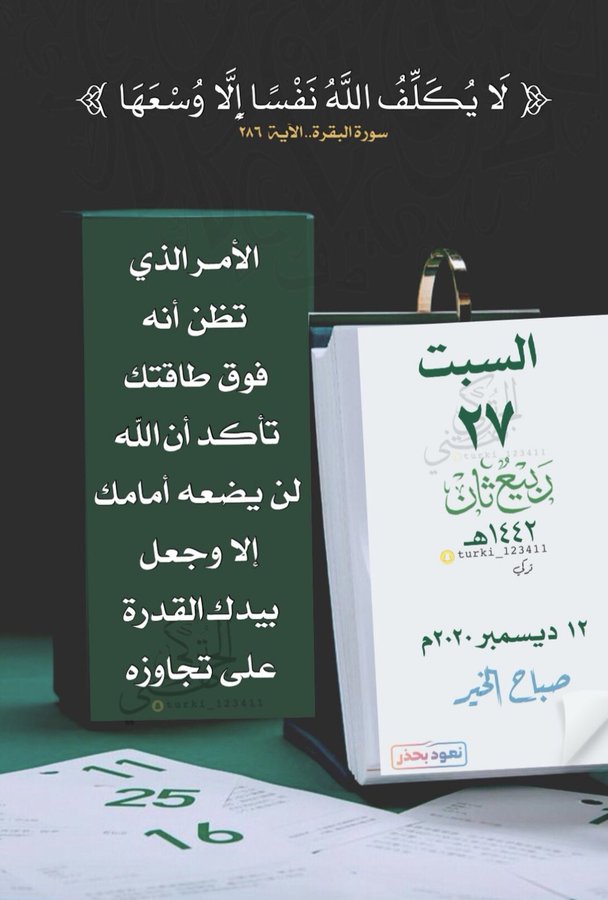 ﴿ لَا يُكَلِّفُ اللَّهُ نَفْسًا إِلَّا وُسْعَهَا ﴾
سورة البقرة..الآية ٢٨٦
الأمـر الذي
تظن أنه
فوق طاقتك
تأكد أن الله
لن يضعه أمامك
إلا وجعل
بيدك القدرة
على تجاوزه
turki_123411
السبت
٢٧
123411
رَبيعٌ ثَان
١٤٤٢هـ
turki_123411
تركي
١٢ ديسمبر ٢٠٢٠م
صباح الخير
نعود بحذر
11
25
16